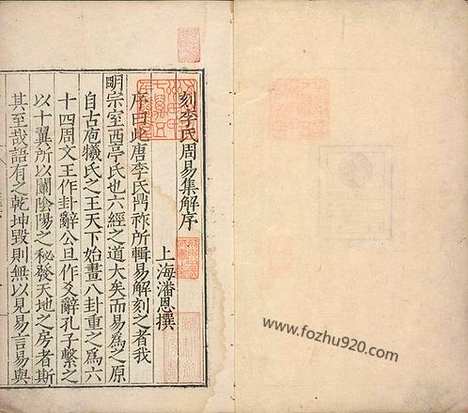 刻李氏周易集解序
上海潘恩撰
序曰此唐李氏鼎祚所輯易解刻之者我
明宗室西亭氏也六經之道大矣而易為之原
自古庖犧氏之王天下始畫八卦重之為六
十四周文王作卦辭公旦作爻辭孔子繫之
以十翼所以闡陰陽之秘發天地之房者斯
其至哉語有之乾坤毀則無以見易言易與
www.fozhu920.com